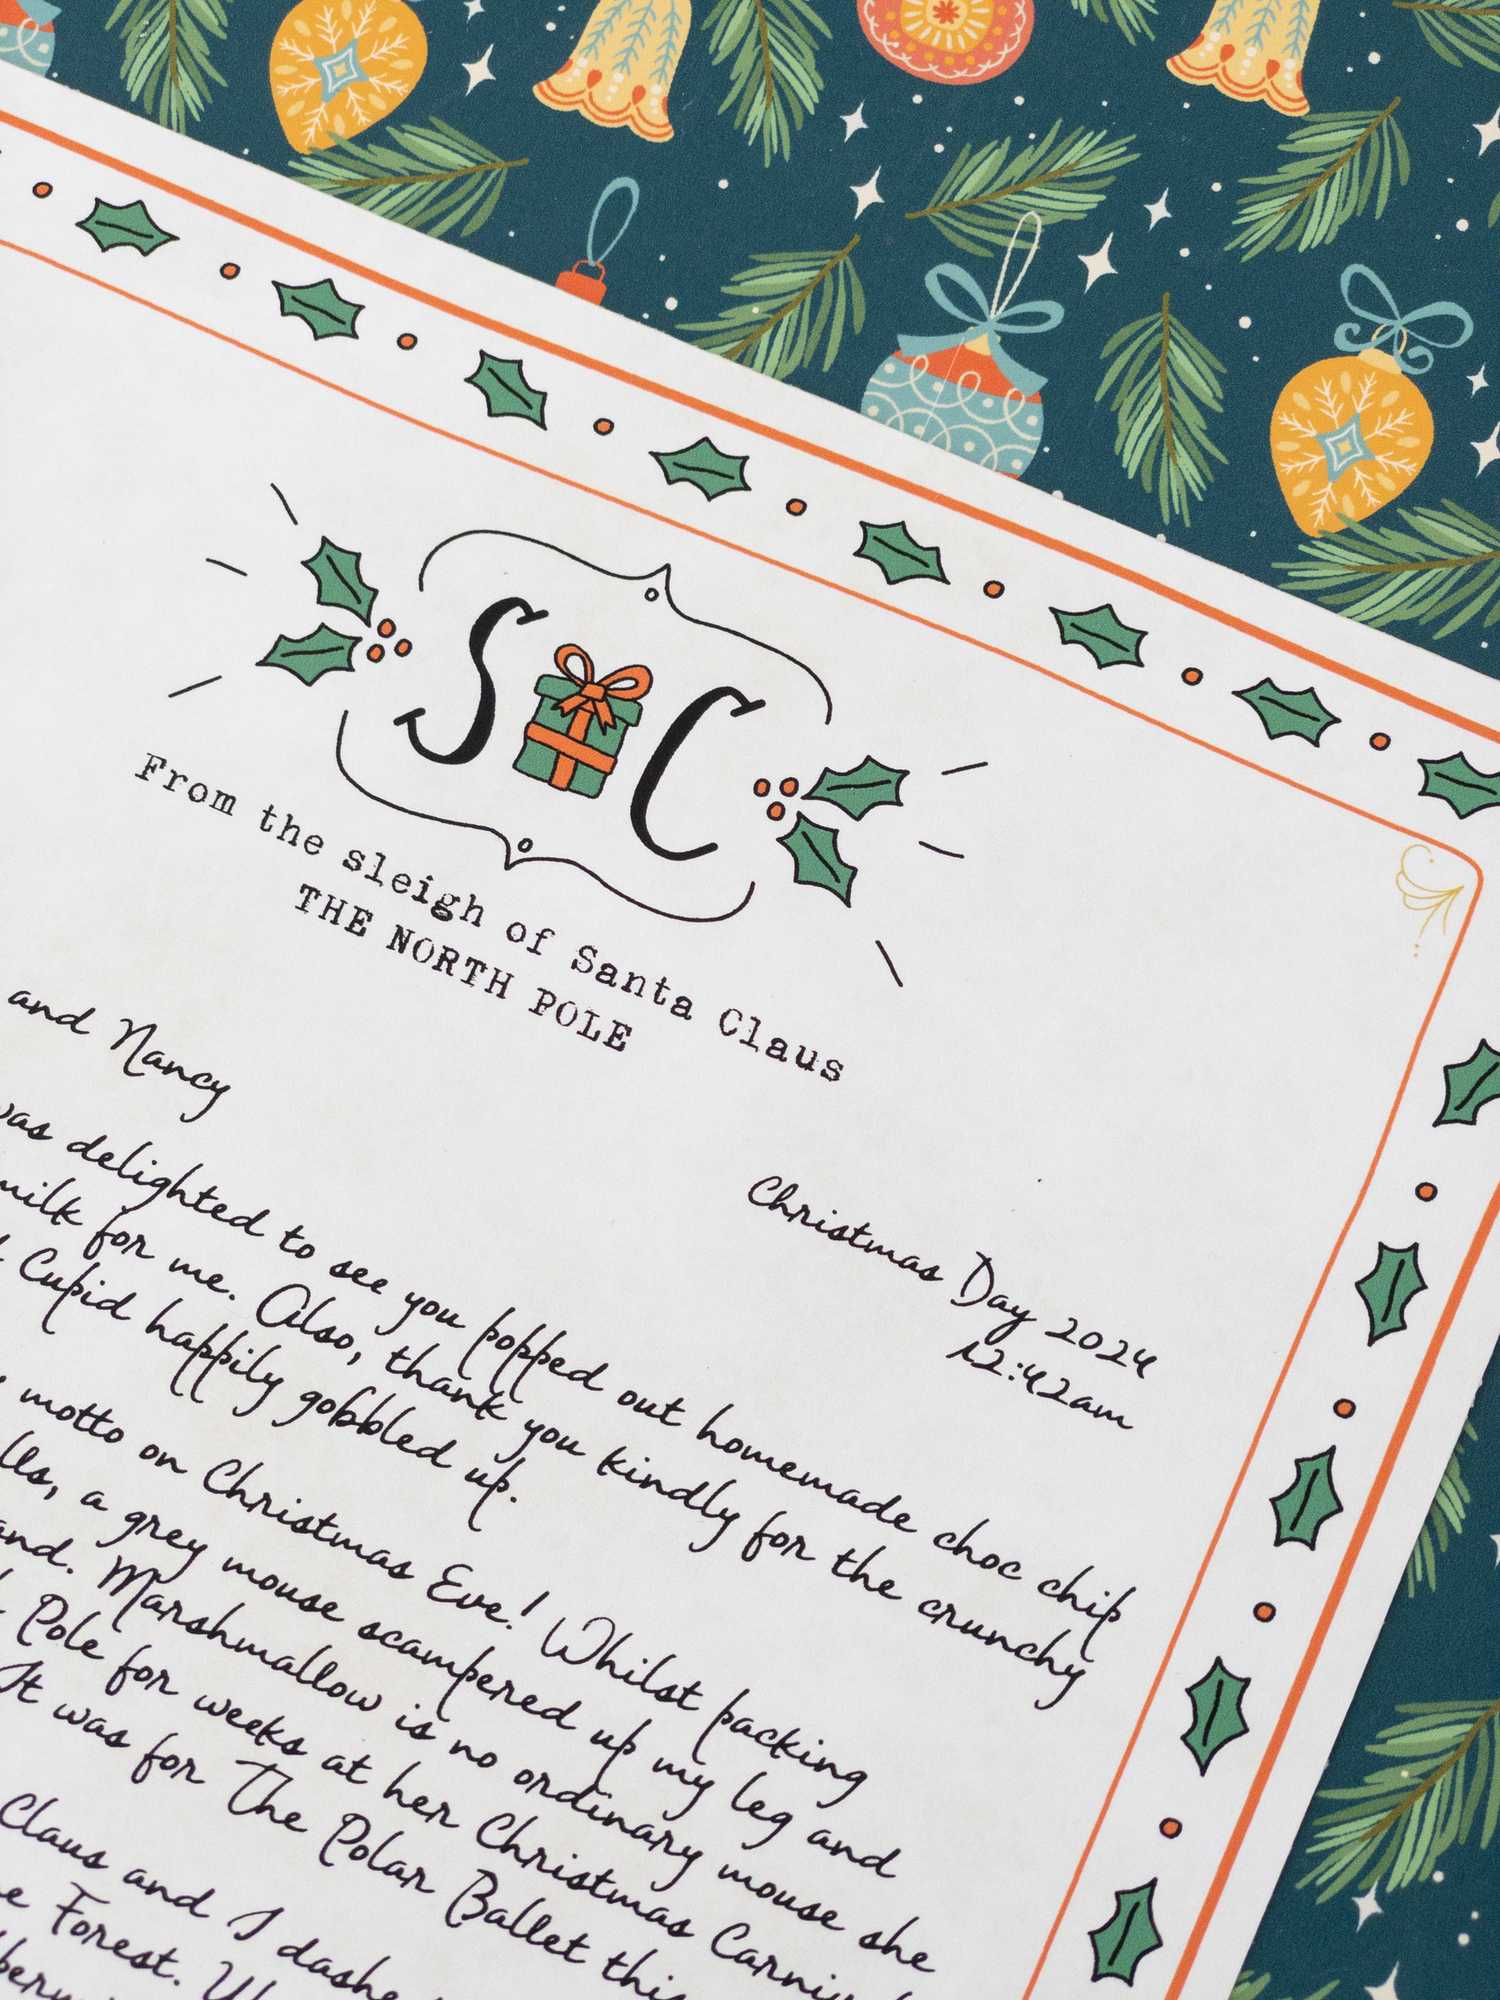 S C
From the sleigh of Santa Claus
THE NORTH POLE
Christmas Day 2024
12:42am
and Nancy
was delighted to see you popped out homemade choc chip
milk for me. Also, thank you kindly for the crunchy
Cupid happily gobbled up.
motto on Christmas Eve! Whilst packing
a grey mouse scampered up my leg and
Marshmallow is no ordinary mouse she
Pole for weeks at her Christmas
It was for The Polar Ballet
Claus and I
Forest.